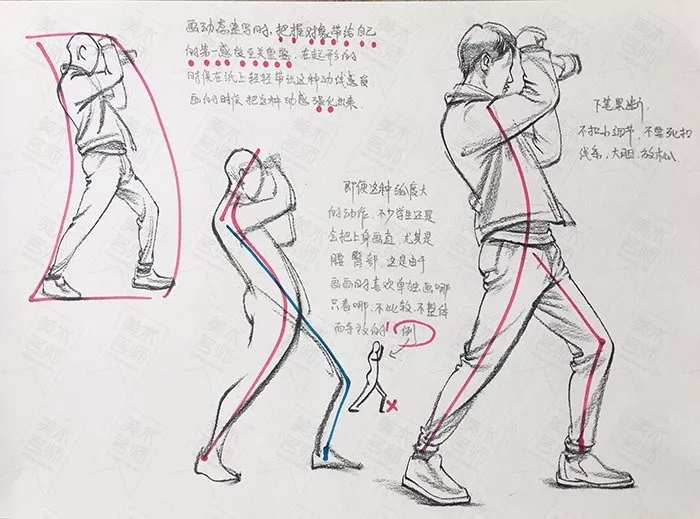 画动态速写时,把握对象带给自己
的第一感受至关重要,在起形的
时候在纸上轻轻带出这种动线感受
画的时候把这种动感强化出来.
下笔果断,
不抠小细节,不要死扣
线条,大胆.放松
即便这种弧度大
的动作,不少学生还是
会把上身画直,尤其是
腰臀部,这是由于
画画时喜欢单独画哪
只看哪,不比较,不整体
而导致的!例
美术